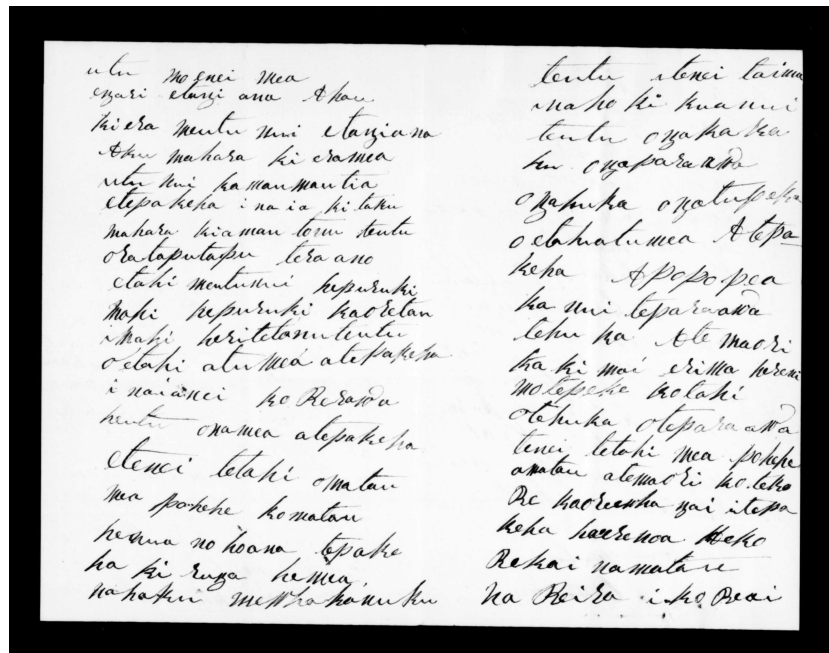 utu mo enei mea
engari etangi ana Ahau
kiera meutu nui etangiana
Aku mahara ki eramea
utu nui kamaumautia
etepakeha inaia kitaku
mahara kiamau tonu teutu
orataputapu teraano
etahi meutunui hepuruki
maki hepuruki kaoretau
imaki heritetonuteutu
oetahi atumea atepakeha
i naianei ko Rerawa
heutu onamea atepakeha
etenei tetahi omatau
mea pohehe komatau
henua no hoana tepake
ha ki runga hemea
nahaku mewhakanuku
teutu itenei taima
inaho ki kuanui
teutu ongakaka
hu ongaparaawa
ongahuka ongatupeka
oetahiatumea Atepa-
keha Apopopea
ka nui teparaawa
tehu ka Ate maori
ka ki mai erima hereni
motepeke kotahi
otehuka oteparaawa
tenei tetahi mea pohehe
amatau atemaori ko.teko
Re kaoreewha ngai itepa
keha harrenoa Heko
Rekai namatau
na Reira i ko Reai